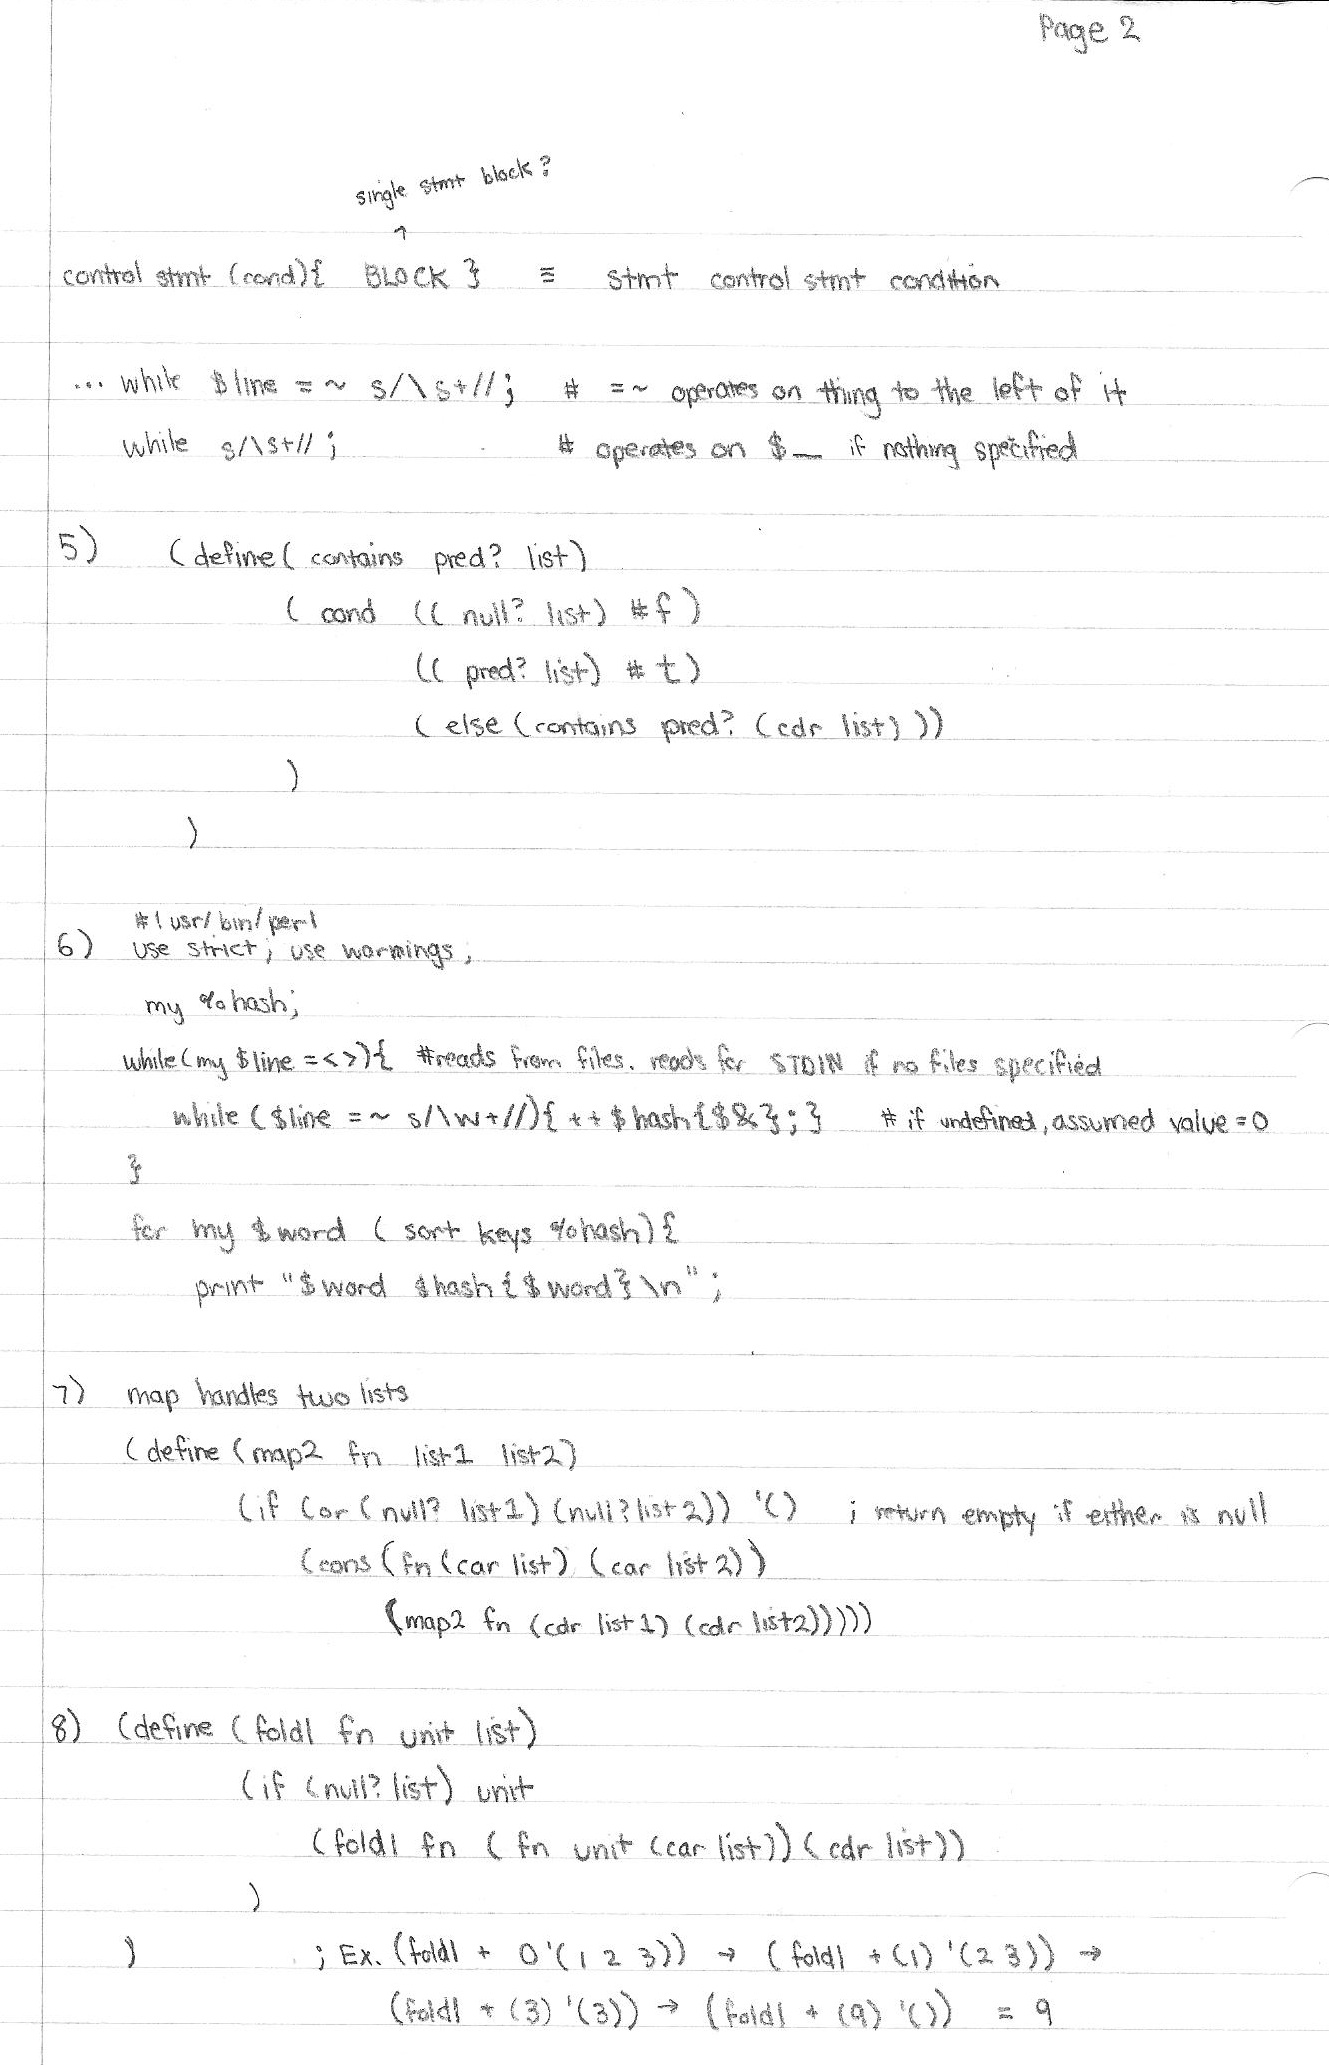 Page 2
single stmt block?
↑
control stmt (cond){ BLOCK } ≡ stmt control stmt condition
... while $line =~ s/\s+//; # =~ operates on thing to the left of it
while s/\s+//; # operates on $_ if nothing specified
5) (define( contains pred? list)
( cond (( null? list) #f )
(( pred? list) #t)
( else (contains pred? (cdr list) ))
)
)
#! usr/bin/perl
6) use strict; use warnings;
my %hash;
while(my $line =<>){ #reads from files. reads for STDIN if no files specified
while ($line =~ s/\w+//){ ++$hash{$&}; } # if undefined, assumed value = 0
}
for my $word ( sort keys %hash){
print "$word $hash{$word}\n";
7) map handles two lists
(define (map2 fn list1 list2)
(if (or (null? list1) (null? list2)) '() ; return empty if either is null
(cons (fn (car list) (car list2))
(map2 fn (cdr list1) (cdr list2)))))
8) (define (foldl fn unit list)
(if (null? list) unit
(foldl fn ( fn unit (car list)) (cdr list))
)
) ; Ex. (foldl + 0 '(1 2 3)) → (foldl + (1) '(2 3)) →
(foldl + (3) '(3)) → (foldl + (9) '()) = 9